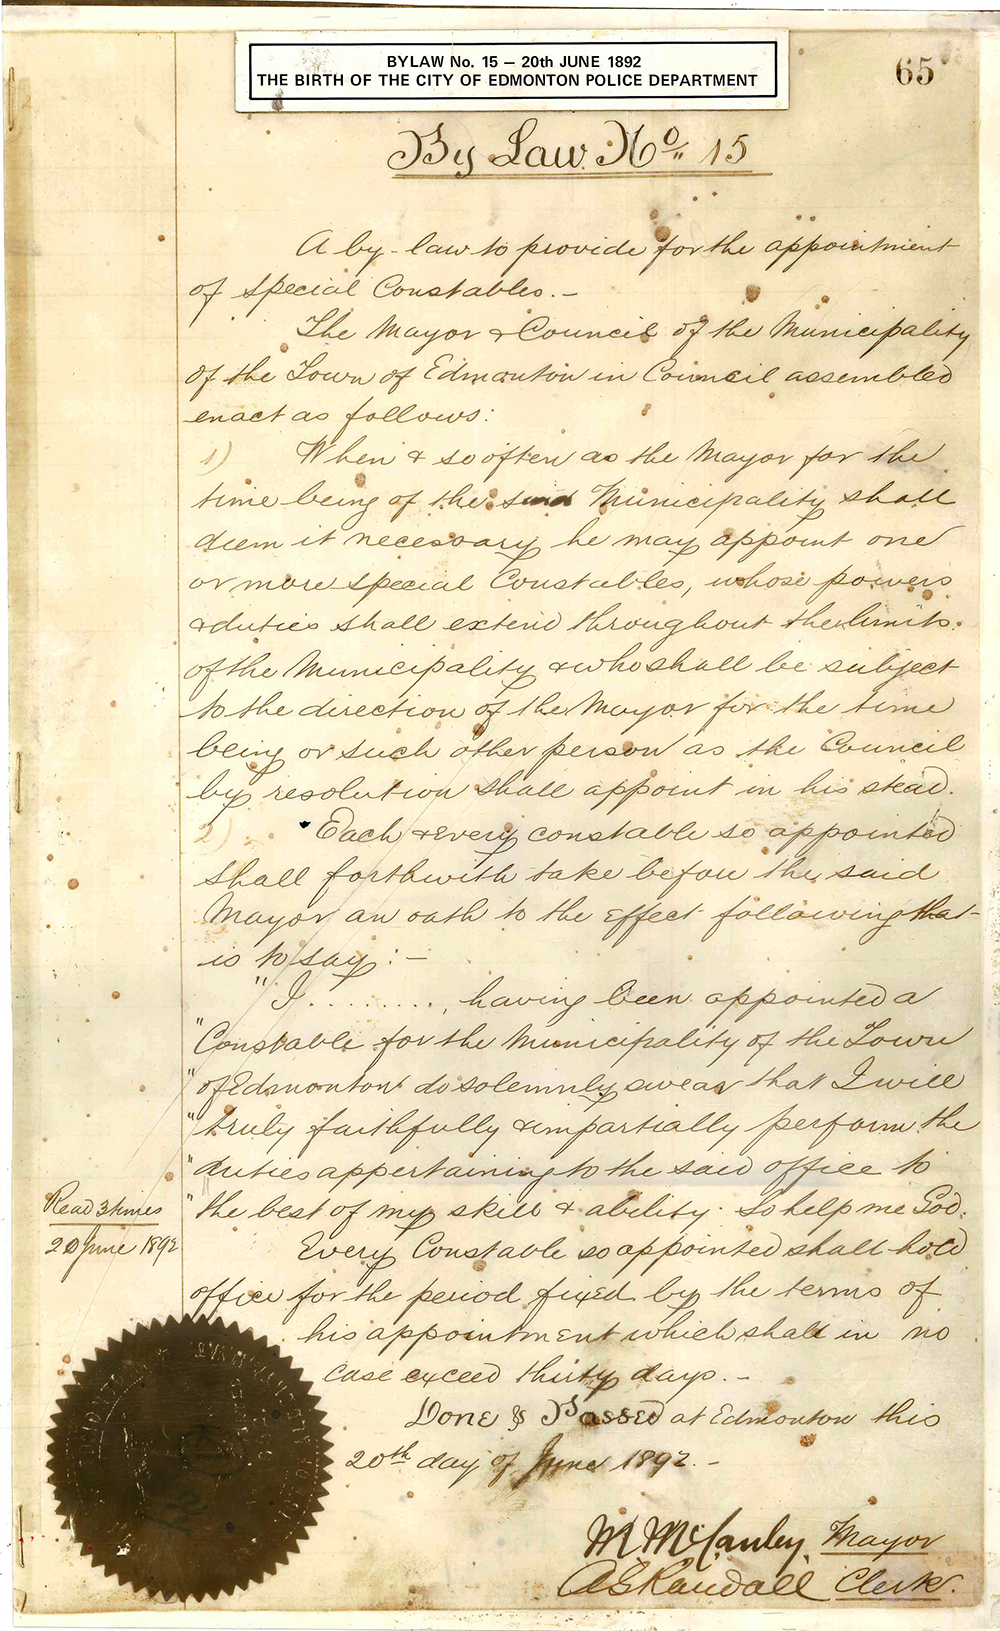 BYLAW No. 15 – 20th JUNE 1892
THE BIRTH OF THE CITY OF EDMONTON POLICE DEPARTMENT
65
By Law No. 15
A by-law to provide for the appointment
of special Constables.-
The Mayor & Council of the Municipality
of the Town of Edmonton in Council assembled
enact as follows:
1) When & so often as the Mayor for the
time being of the said Municipality shall
deem it necessary he may appoint one
or more special Constables, whose powers
& duties shall extend throughout the limits.
of the Municipality & who shall be subject
to the direction of the Mayor for the time
being or such other person as the Council
by resolution shall appoint in his stead.
2) Each & Every constable so appointed
shall forthwith take before the said
Mayor an oath to the effect following that
is to say:-
"I ........., having been appointed a
"Constable for the Municipality of the Town
"of Edmonton do solemnly swear that I will
"truly faithfully & impartially perform the
"duties appertaining to the said office to
"the best of my skill & ability. So help me God.
Read 3 times
20 June 1892
Every Constable so appointed shall hold
office for the period fixed by the terms of
his appointment which shall in no
case exceed thirty days.-
Done & Passed at Edmonton this
20th day of June 1892.-
M McCauley, Mayor
A G Randall Clerk.